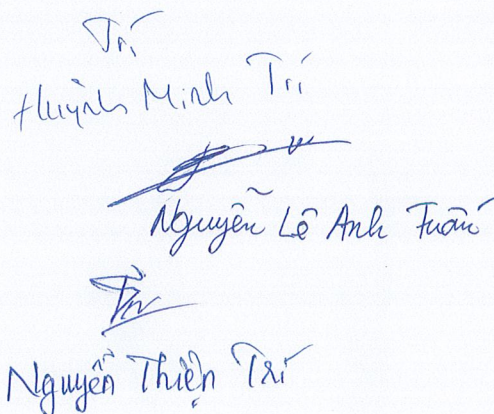 Trí
Huỳnh Minh Trí
Nguyễn Lê Anh Tuấn
Nguyễn Thiện Trí